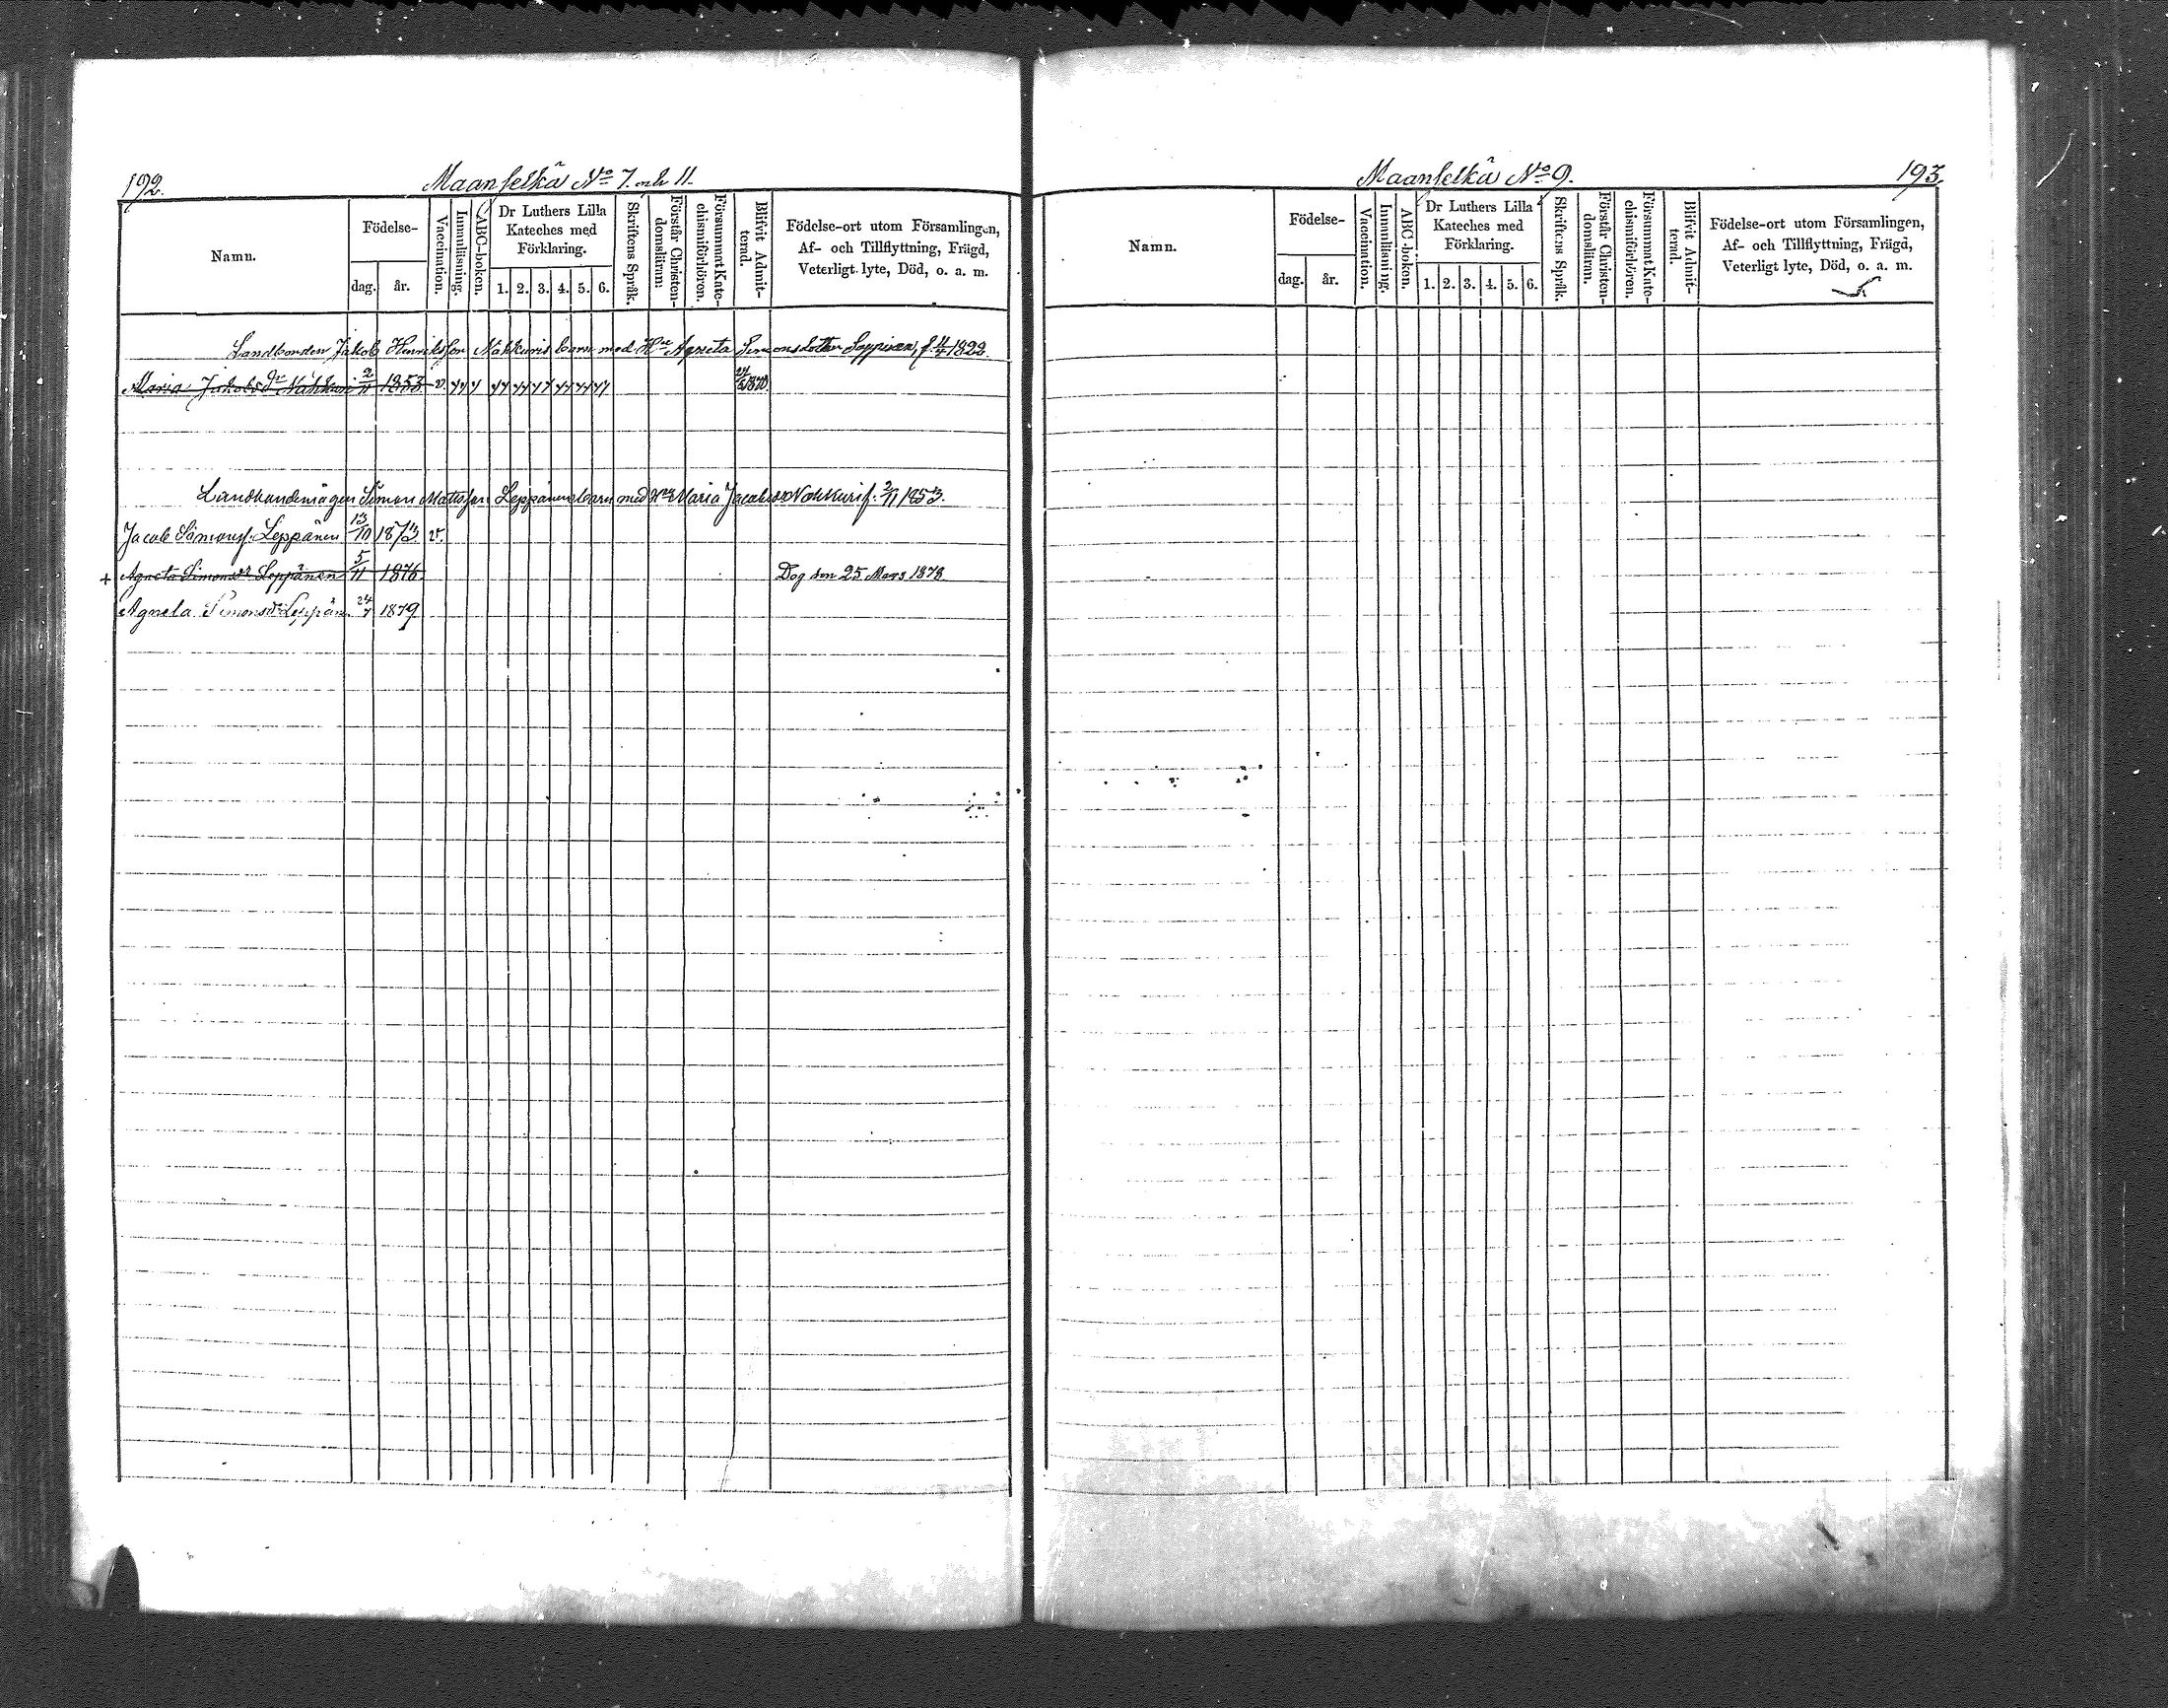 192.
Maanselkä No 7. och 11.
Namn.
Födelse-
dag.
år.
Vaccination.
Innanläsning.
ABC-boken.
Dr Luthers Lilla
Kateches med
Förklaring.
1. 2. 3. 4. 5. 6.
Skriftens Språk.
Förstår Christen-
domsläran.
Försummat Kate-
chismiförhören.
Blifvit Admit-
terad.
Födelse-ort utom Församlingen,
Af- och Tillflyttning, Frägd,
Veterligt lyte, Död, o. a. m.
Landbonden Jakob Henriksson Nakkuris barn med Hu Agneta Simonsdotter f. 1822.
Maria Jakobsdr Nakkuri 2/11 1853 v.
Simon Mattsson Leppänens barn med Hu Maria Jacobsdr Nakkuri f. 2/11 1853.
Jacob Simonss. Leppänen 13/10 1873 v.
+ Agneta Simonsdr Leppänen 5/11 1876 Dog den 25 Mars 1878
Agneta Simonsdr Leppän 24/7 1879
Maanselkä No 9.
193.
Namn.
Födelse-
dag.
år.
Vaccination.
Innanläsning.
ABC-boken.
Dr Luthers Lilla
Kateches med
Förklaring.
1. 2. 3. 4. 5. 6.
Skriftens Språk.
Förstår Christen-
domsläran.
Försummat Kate-
chismiförhören.
Blifvit Admit-
terad.
Födelse-ort utom Församlingen,
Af- och Tillflyttning, Frägd,
Veterligt lyte, Död, o. a. m.